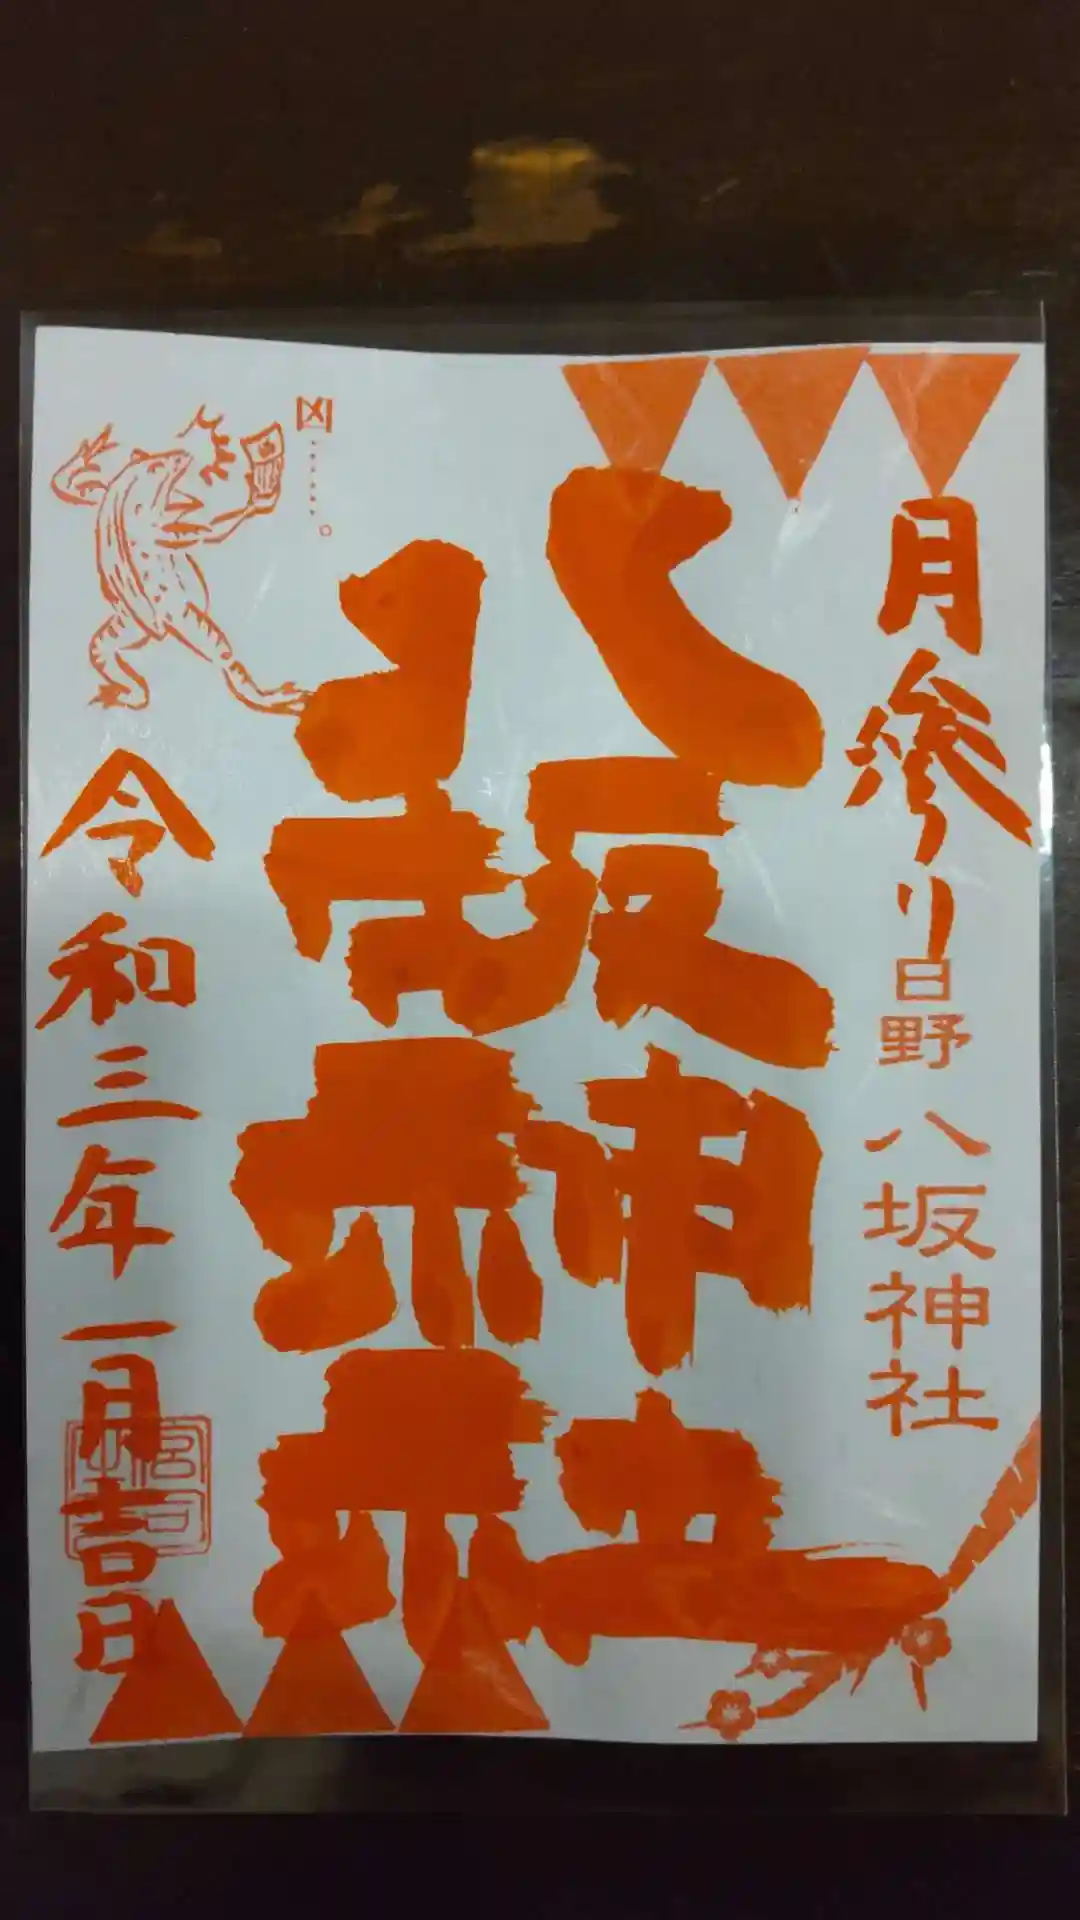 月参り
日野八坂神社
八坂神社
凶
令和三年一月吉日
宮司